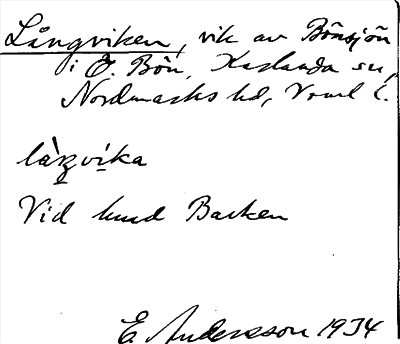 Långviken, vik av Bönsjön
i Ö. Bön, Karlanda sn,
Nordmarks hd, Vrml l.
Vid hmd Backen
E. Andersson 1934